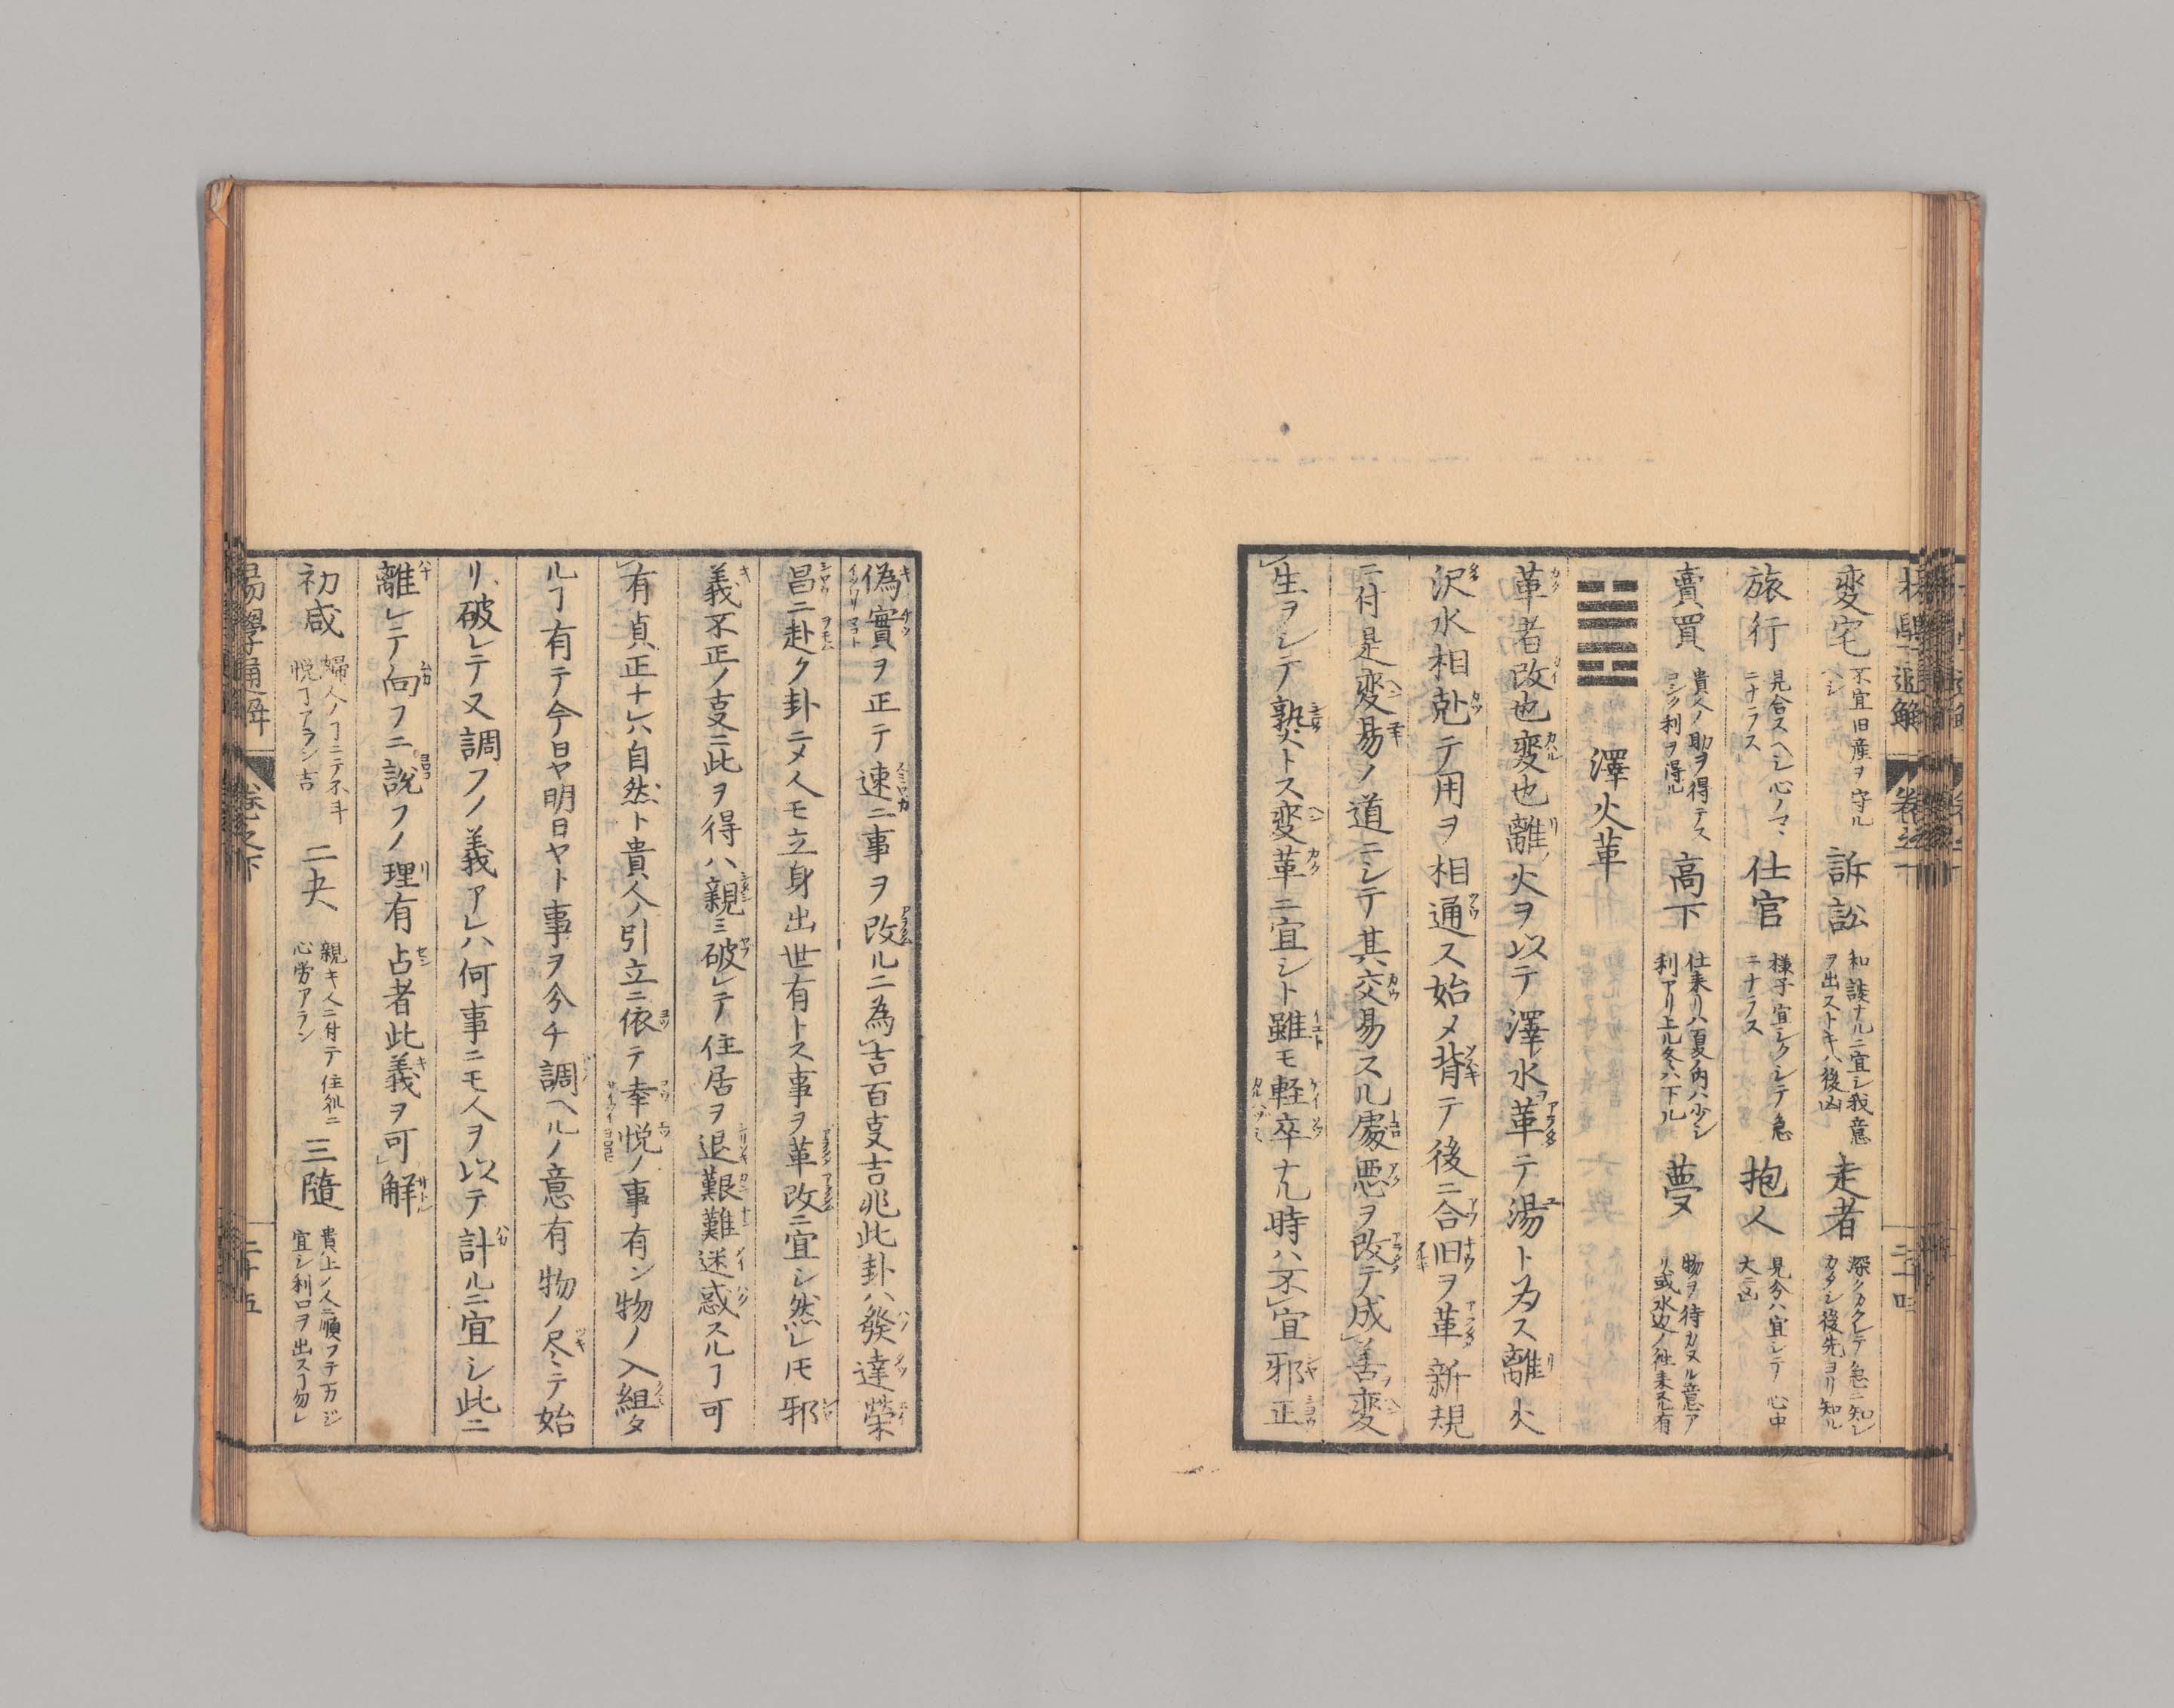 変宅 不宜旧産ヲ守ルヘシ 訴訟 和談ナルニ宜シ我意ヲ出ストキハ後凶 走者 深クカクレテ急ニ知レカタシ後先ヨリ知ル
旅行 見合スヘシ心ノマヽニナラス 仕官 様子宜シクシテ急ニナラス 抱人 見分ハ宜シテ心中大ニ凶
賣買 貴人ノ助ヲ得テスコシク利ヲ得ル 高下 仕来リハ夏内ハ少シ利アリ上ル冬ハ下ル 夢 物ヲ待カヌル意アリ或水辺ノ往来スル有
䷰ 澤火革
革者改也変也離ノ火ヲ以テ澤水ヲ革テ湯ト为ス離火
沢水相尅テ用ヲ相通ス始メ背テ後ニ合旧ヲ革新規
ニ付是変易ノ道ニシテ其交易スル處悪ヲ改テ成善変
生ヲシテ熟トス変革ニ宜シト雖モ軽卒ナル時ハ不宜邪正
偽實ヲ正テ速ニ事ヲ改ルニ為吉百叓吉兆此卦ハ發達榮
昌ニ赴ク卦ニメ人モ立身出世有トス事ヲ革改ニ宜シ然レ𪜈邪
義不正ノ叓ニ此ヲ得ハ親ミ破レテ住居ヲ退艱難迷惑スルヿ可
有貞正ナレハ自然ト貴人ノ引立ニ依テ幸悦ノ事有ン物ノ入組タ
ルヿ有テ今日ヤ明日ヤト事ヲ分チ調ヘルノ意有物ノ尽ミテ始
リ破レテ又調フノ義アレハ何事ニモ人ヲ以テ計ルニ宜シ此ニ
離レテ向フニ説フノ理有占者此義ヲ可解
初咸 婦人ノヿニテ不キ悦ヿアラン吉 二夬 親キ人ニ付テ住処ニ心労アラン 三隨 貴上ノ人ニ順フテ万ジ宜シ利口ヲ出スヿ勿レ
易學通解 卷之下 二十五